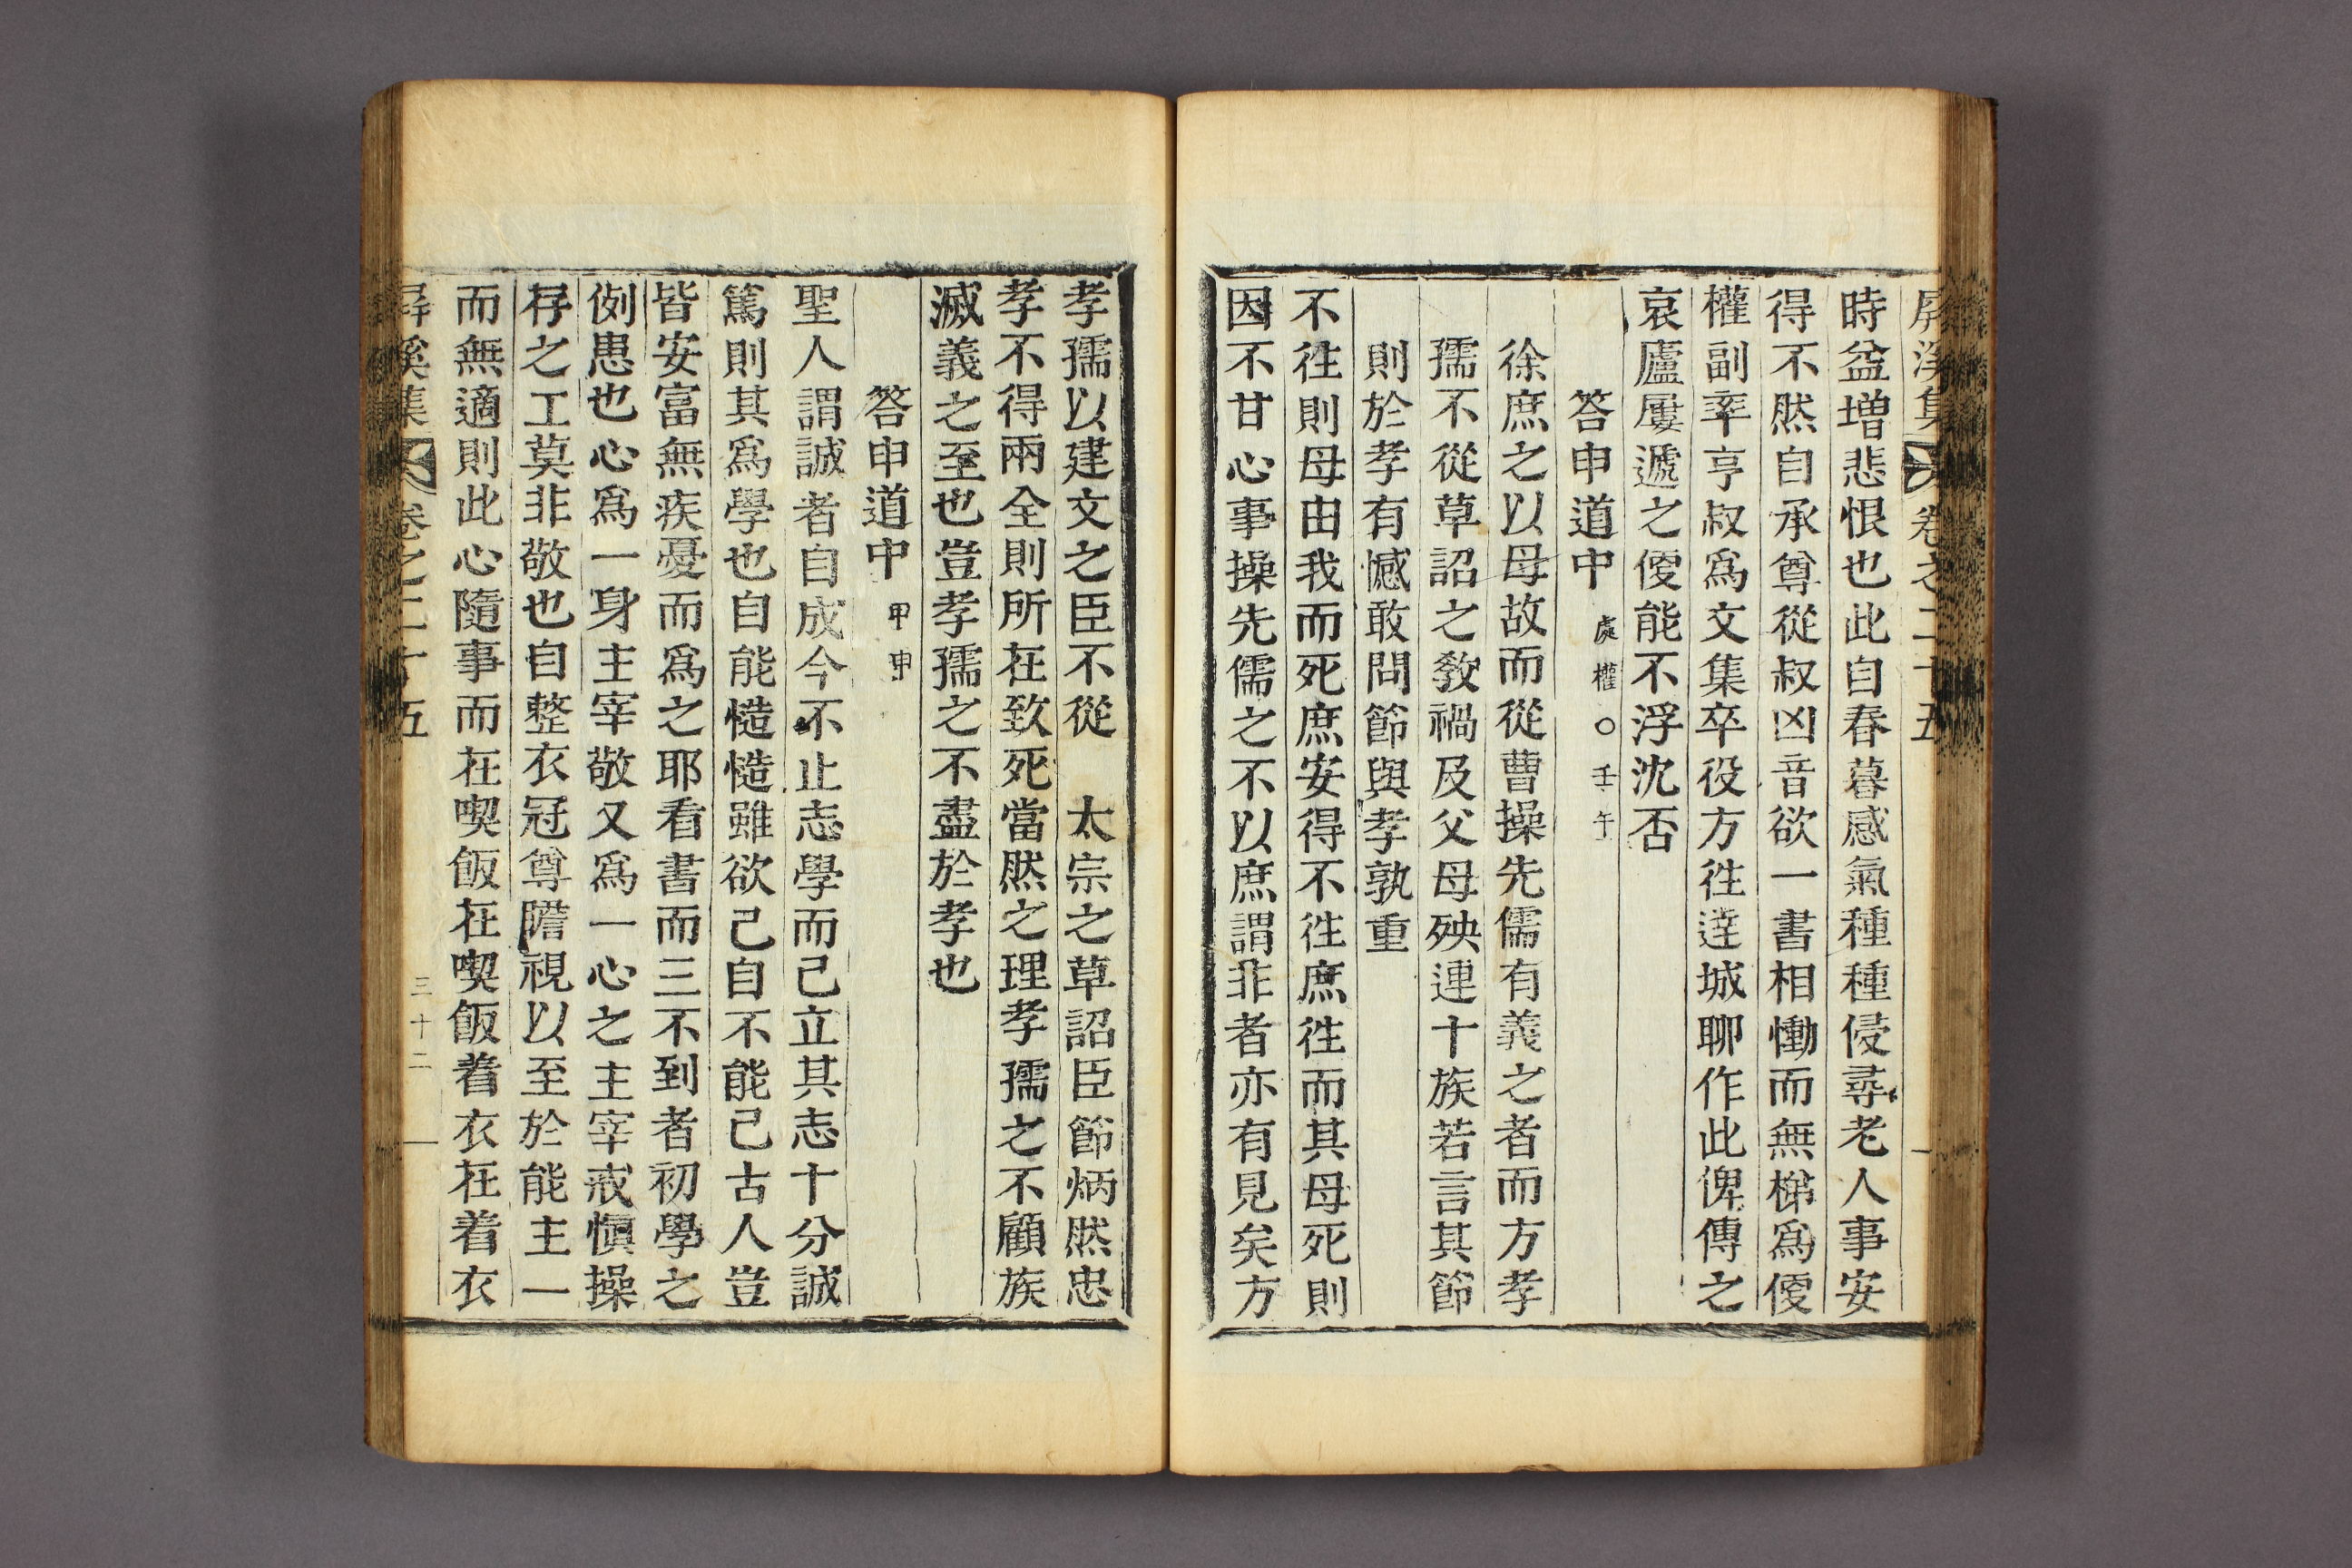 屏溪集 卷之二十五
時益增悲恨也此自春暮感氣種種侵尋老人事安
得不然自承尊從叔凶音欲一書相慟而無梯爲便
權副率亨叔爲文集卒役方徃達城聊作此俾傳之
哀廬屢遞之便能不浮沈否
答申道中 處權○壬午
徐庶之以母故而從曹操先儒有義之者而方孝
孺不從草詔之敎禍及父母殃連十族若言其節
則於孝有憾敢問節與孝孰重
不徃則母由我而死庶安得不徃庶徃而其母死則
因不甘心事操先儒之不以庶謂非者亦有見矣方
孝孺以建文之臣不從 太宗之草詔臣節炳然忠
孝不得兩全則所在致死當然之理孝孺之不顧族
滅義之至也豈孝孺之不盡於孝也
答申道中 甲申
聖人謂誠者自成今不止志學而己立其志十分誠
篤則其爲學也自能慥慥雖欲己自不能己古人豈
皆安富無疾憂而爲之耶看書而三不到者初學之
例患也心爲一身主宰敬又爲一心之主宰戒愼操
存之工莫非敬也自整衣冠尊瞻視以至於能主一
而無適則此心隨事而在喫飯在喫飯着衣在着衣
屏溪集 卷之二十五 三十二